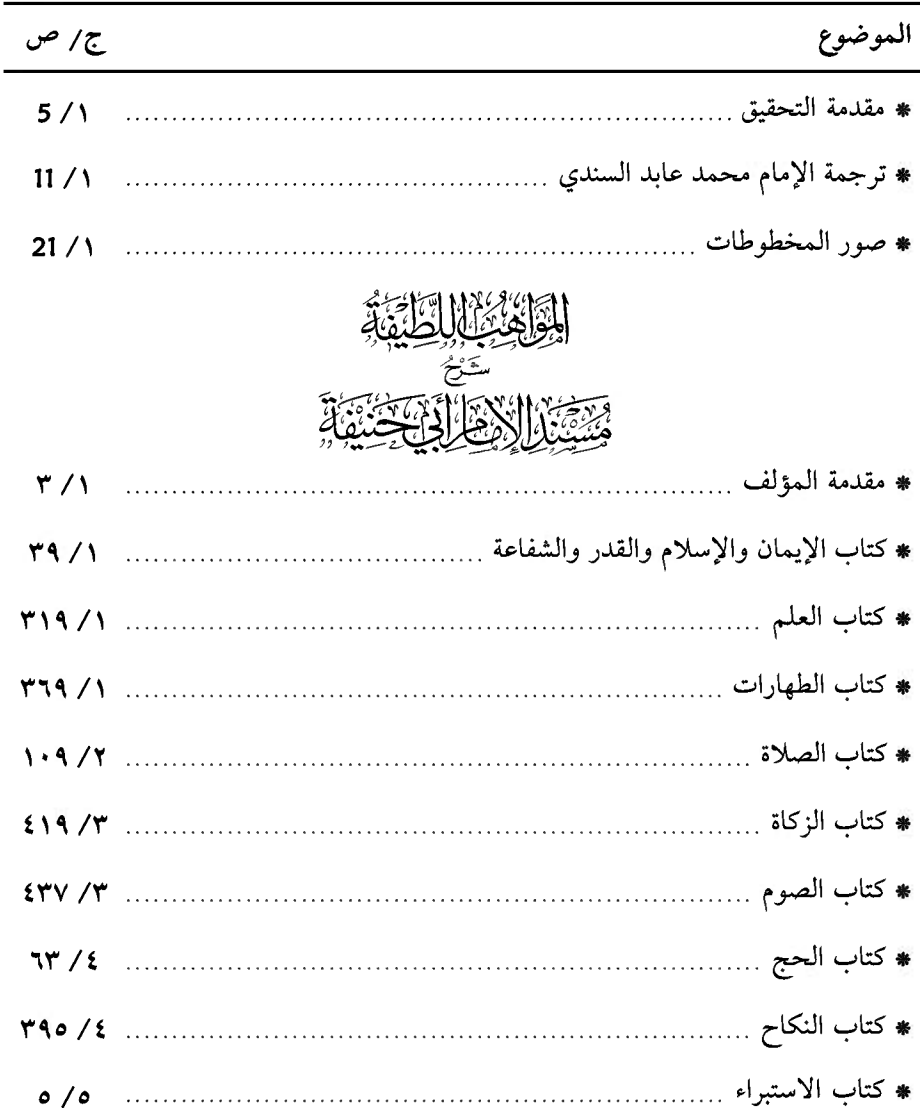 الموضوع ج/ ص
* مقدمة التحقيق ........ ١/ 5
* ترجمة الإمام محمد عابد السندي ........ ١/ 11
* صور المخطوطات ........ ١/ 21
المَوَاهِبُ اللَّطِيْفَةُ
شَرْحُ
مُسْنَدِ الإِمَامِ أَبِيْ حَنِيْفَةَ
* مقدمة المؤلف ........ ١/ ٣
* كتاب الإيمان والإسلام والقدر والشفاعة ........ ١/ ٣٩
* كتاب العلم ........ ١/ ٣١٩
* كتاب الطهارات ........ ١/ ٣٦٩
* كتاب الصلاة ........ ٢/ ١٠٩
* كتاب الزكاة ........ ٣/ ٤١٩
* كتاب الصوم ........ ٣/ ٤٣٧
* كتاب الحج ........ ٤/ ٦٣
* كتاب النكاح ........ ٤/ ٣٩٥
* كتاب الاستبراء ........ ٥/ ٥